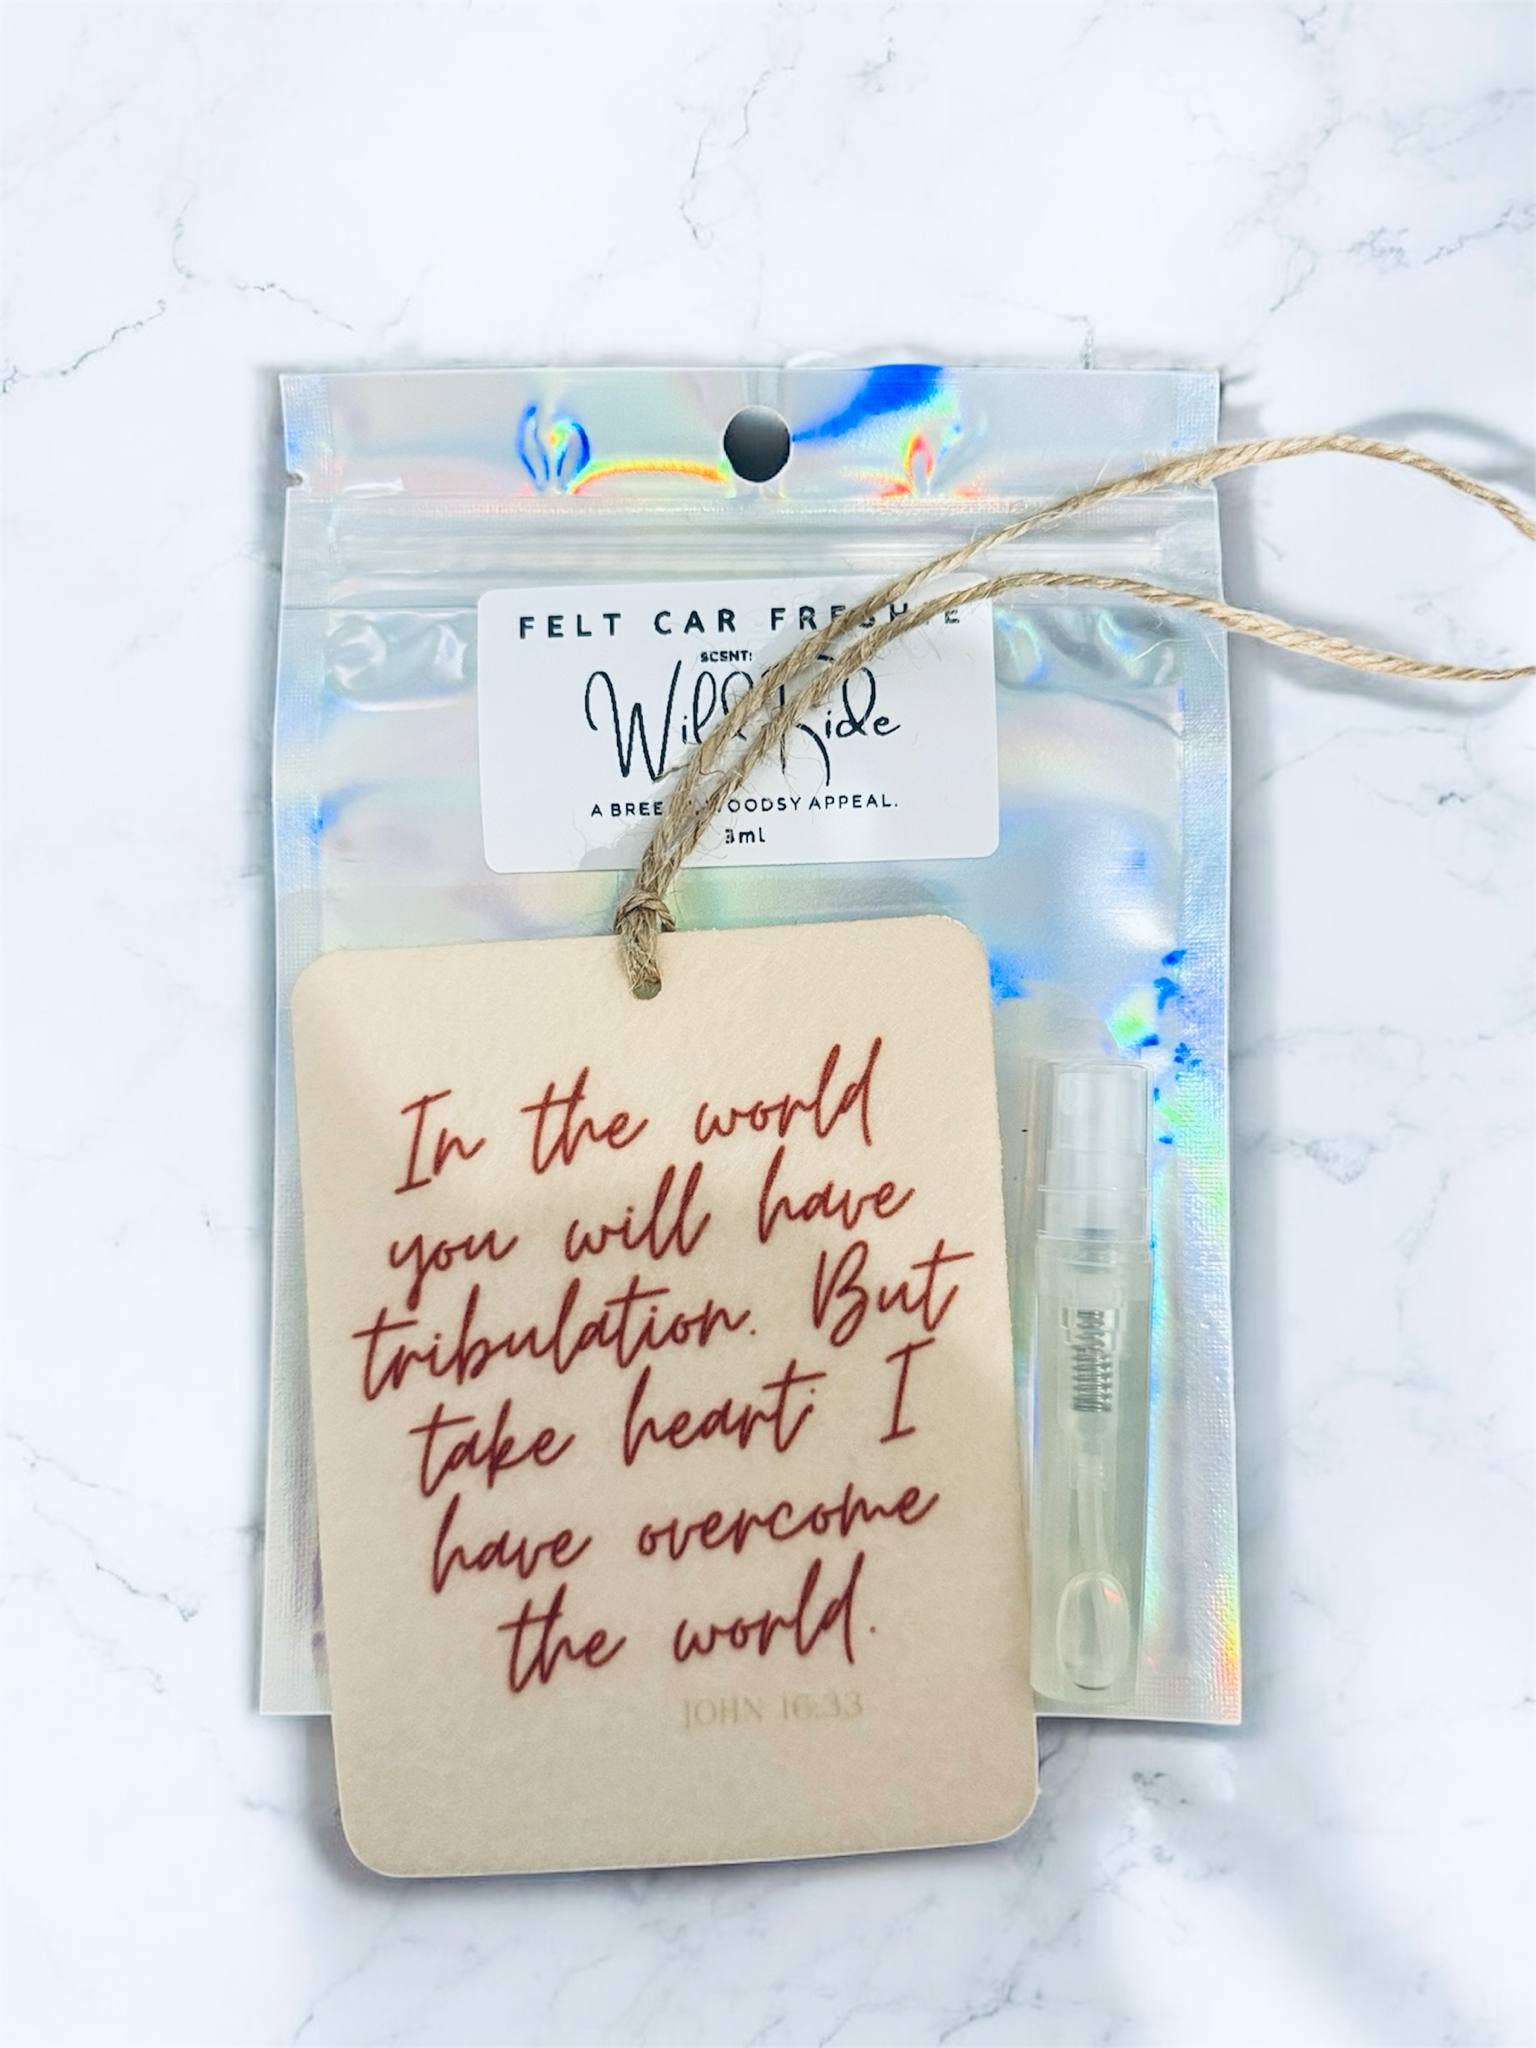 FELT CAR
SCENT:
Wild Ride
A WOODSY APPEAL.
3ml
In the world
you will have
tribulation. But
take heart; I
have overcome
the world.
JOHN 16:33